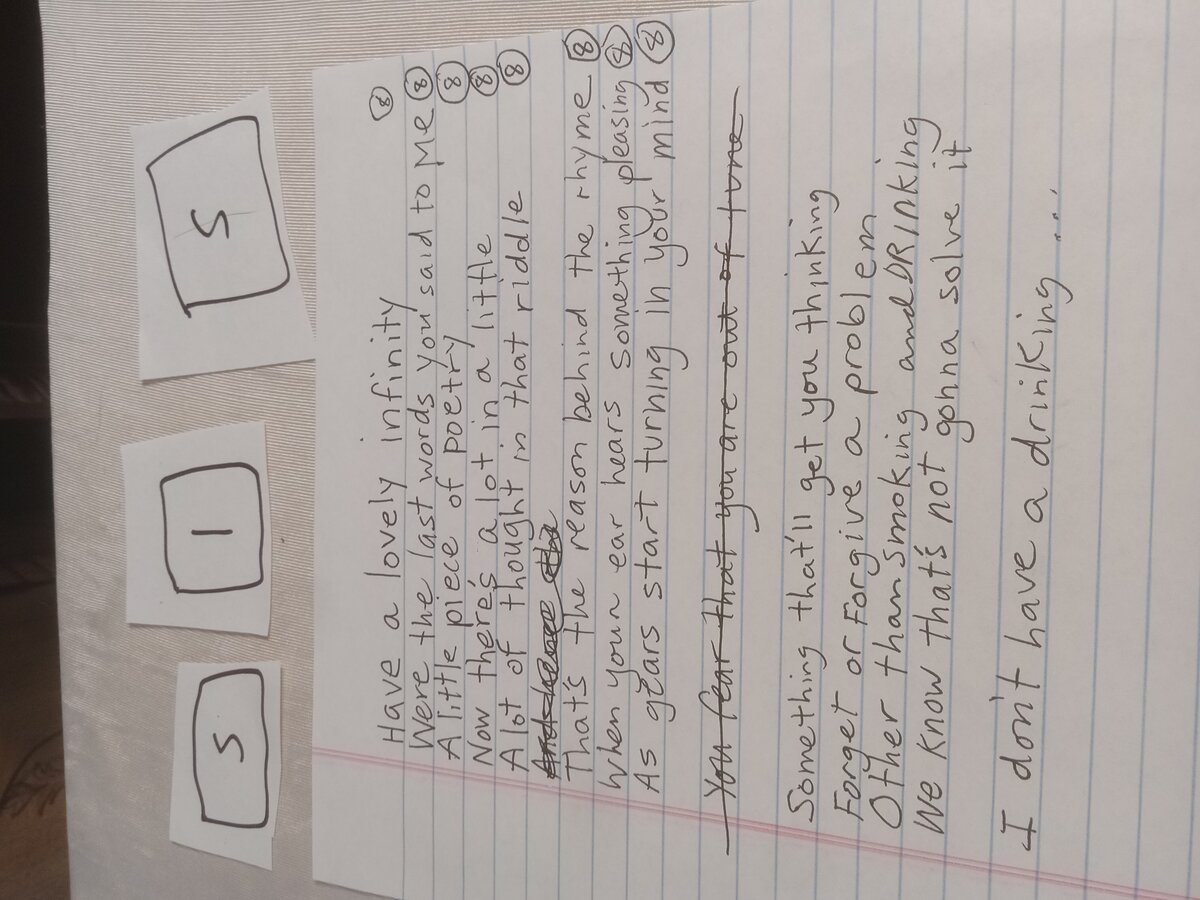 5 1 5
Have a lovely infinity 8
Were the last words you said to Me 8
A little piece of poetry 8
Now there's a lot in a little 8
A lot of thought in that riddle 8
That's the reason behind the rhyme 8
When your ear hears something pleasing 8
As gears start turning in your mind 8
You fear that you are out of tune
Something that'll get you thinking
Forget or Forgive a problem
Other than smoking and DRINKING
We know that's not gonna solve it
I don't have a drinking ...